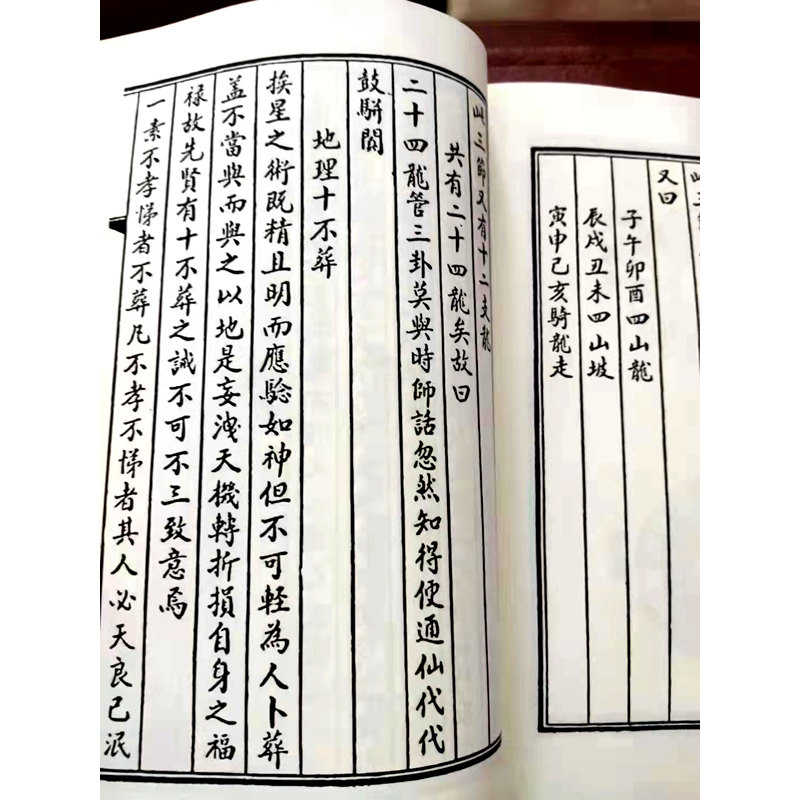 又曰
子午卯酉四山龍
辰戌丑未四山坡
寅申己亥騎龍走
此三節又有十二支龍
共有二十四龍矣故曰
二十四龍管三卦莫與時師話忽然知得便通仙代代
鼓駢闐
地理十不葬
挨星之術既精且明而應驗如神但不可軽為人卜葬
盖不當與而與之以地是妄洩天機轉折損自身之福
禄故先賢有十不葬之誡不可不三致意焉
一素不孝悌者不葬凡不孝不悌者其人必天良已泯